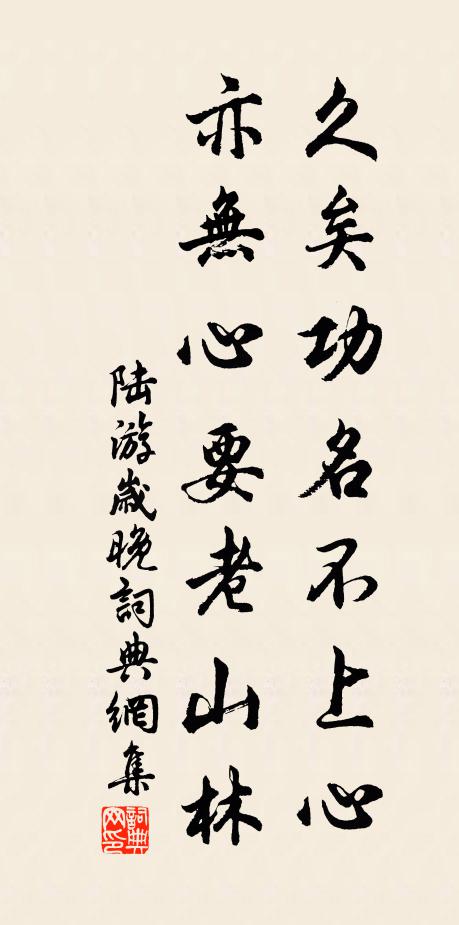 久矣功名不上心
亦無心要老山林
陆游歲晚詞典網集
詞典网印